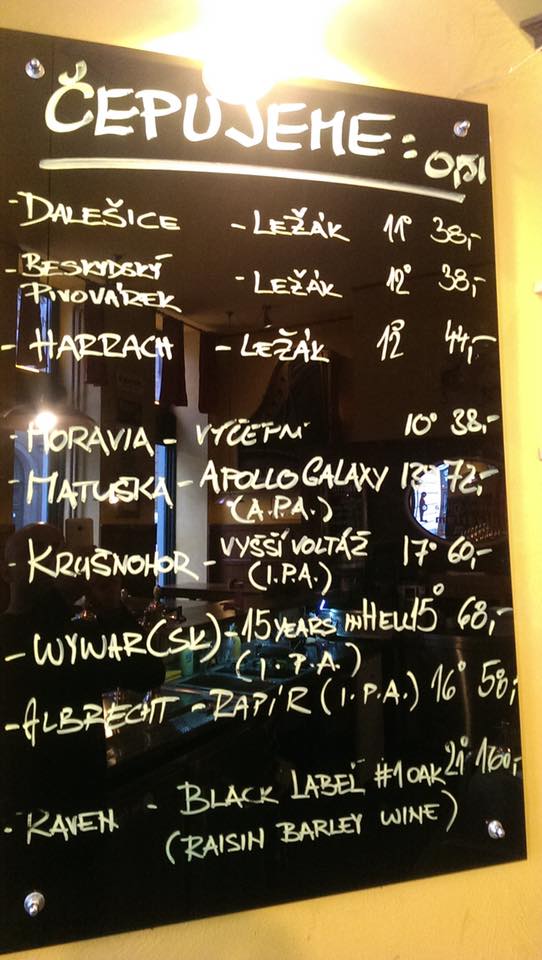 ČEPUJEME: 0,5l
- DALEŠICE - LEŽÁK 11° 38,-
- BESKYDSKÝ PIVOVÁREK - LEŽÁK 12° 38,-
- HARRACH - LEŽÁK 12° 44,-
- MORAVIA - VÝČEPNÍ 10° 38,-
- MATUŠKA - APOLLO GALAXY 13° 72,-
(A.P.A.)
- KRUŠNOHOR - VYŠŠÍ VOLTÁŽ 17° 60,-
(I.P.A.)
- WYWAR (SK) - 15 YEARS IN HELL 15° 68,-
(I.P.A.)
- ALBRECHT - RAPÍR (I.P.A.) 16° 58,-
- RAVEN - BLACK LABEL #1 OAK 21° 160,-
(RAISIN BARLEY WINE)